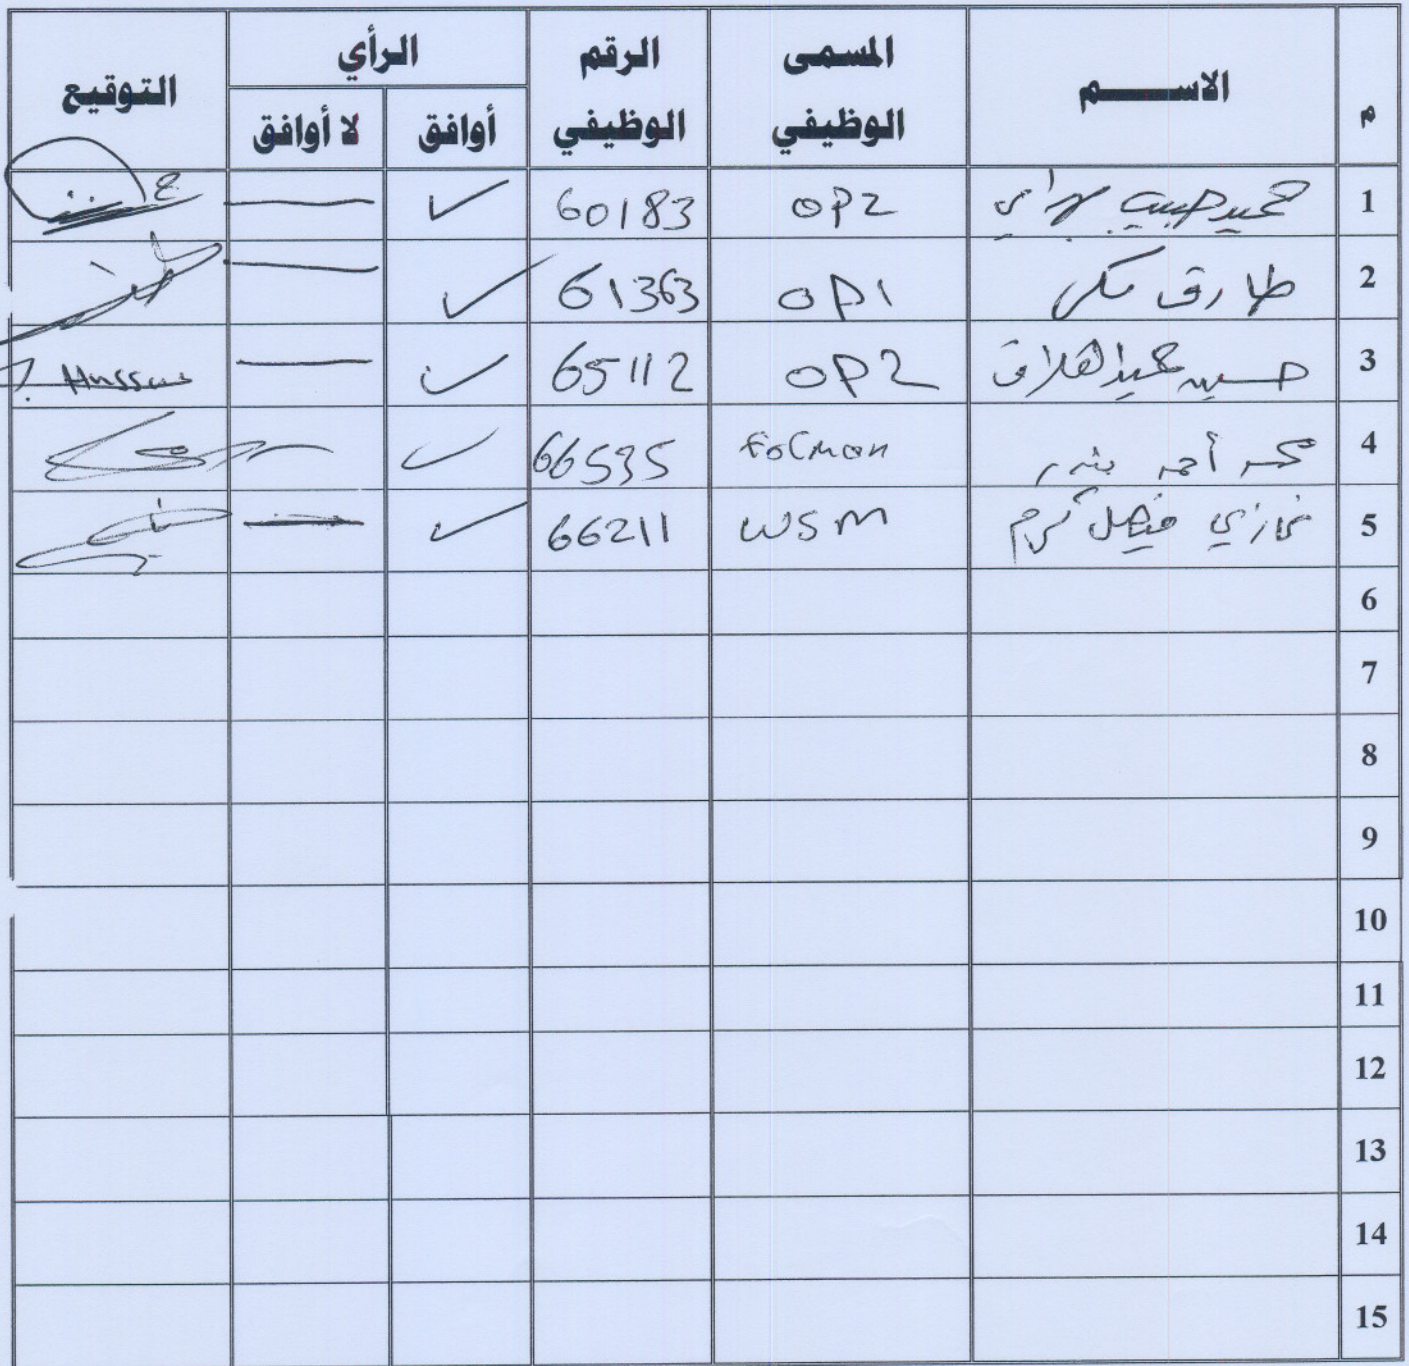 م الاســـــم المسمى الوظيفي الرقم الوظيفي الرأي التوقيع
أوافق لا أوافق
1 حبيب OP2 60183 ✓ —
2 طارق مكي OP1 61363 ✓ —
3 حسين عبد OP2 65112 ✓ — Hussain
4 محمد أحمد بندر Forman 66535 ✓
5 غازي فيصل كرم WSM 66211 ✓ —
6
7
8
9
10
11
12
13
14
15